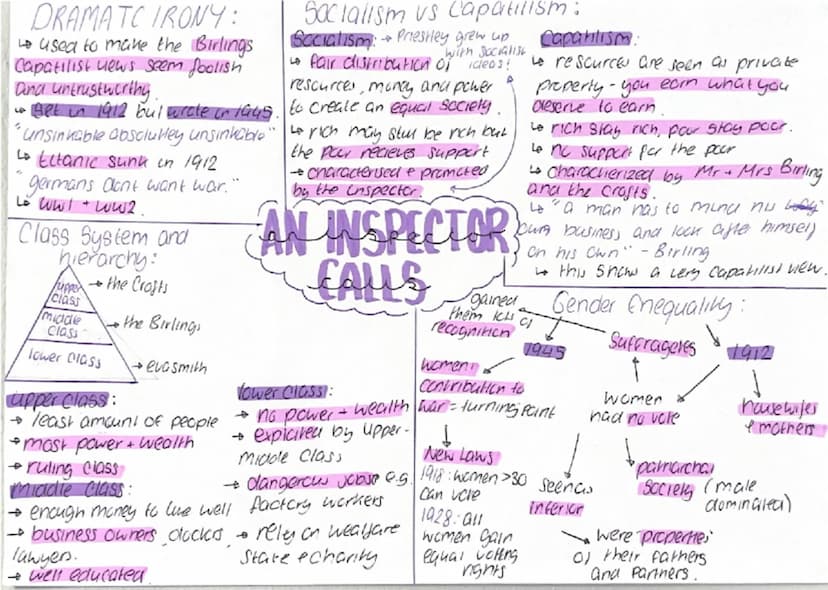 DRAMATC IRONY:
↳ used to make the Birlings
capatilist views seem foolish
and untrustworthy.
↳ set in 1912 but wrote in 1945.
"unsinkable absolutley unsinkable"
↳ titanic sunk in 1912
"germans dont want war."
↳ WW1 + WW2.
Socialism vs Capatilism:
Socialism: → Priestley grew up
with socialist
ideas!
↳ fair distribution of
resources, money and power
to create an equal society.
↳ rich may still be rich but
the poor recieves support
→ characterised + promoted
by the inspector.
Capatilism:
↳ resources are seen as private
property - you earn what you
deserve to earn.
↳ rich stay rich, poor stay poor.
↳ no support for the poor
↳ characterized by Mr + Mrs Birling
and the crofts.
↳ "a man has to mind his
own business and look after himself
on his own" - Birling
↳ this show a very capatilist view.
AN INSPECTOR
an inspector
CALLS
calls
Class System and
hierarchy:
upper
class
→ the Crofts
middle
class
→ the Birlings
lower class
→ eva smith
upper class:
→ least amount of people
→ most power + wealth
→ ruling class
Middle class:
→ enough money to live well
→ business owners, doctors
lawyers.
→ well educated.
lower class:
→ no power + wealth
→ exploited by upper-
middle class
→ dangerous jobs e.g.
factory workers
→ rely on wealfare
state + charity
Gender Enequality:
gained
them lots of
recognition
Suffragetes
1945
1912
women's
contribution to
war = turning point
New Laws
1918: women >30
can vote
1928: all
women gain
equal voting
rights
women
had no vote
housewifes
+ mothers
seen as
inferior
patriarchal
society (male
dominated)
→ were properties
of their fathers
and partners.